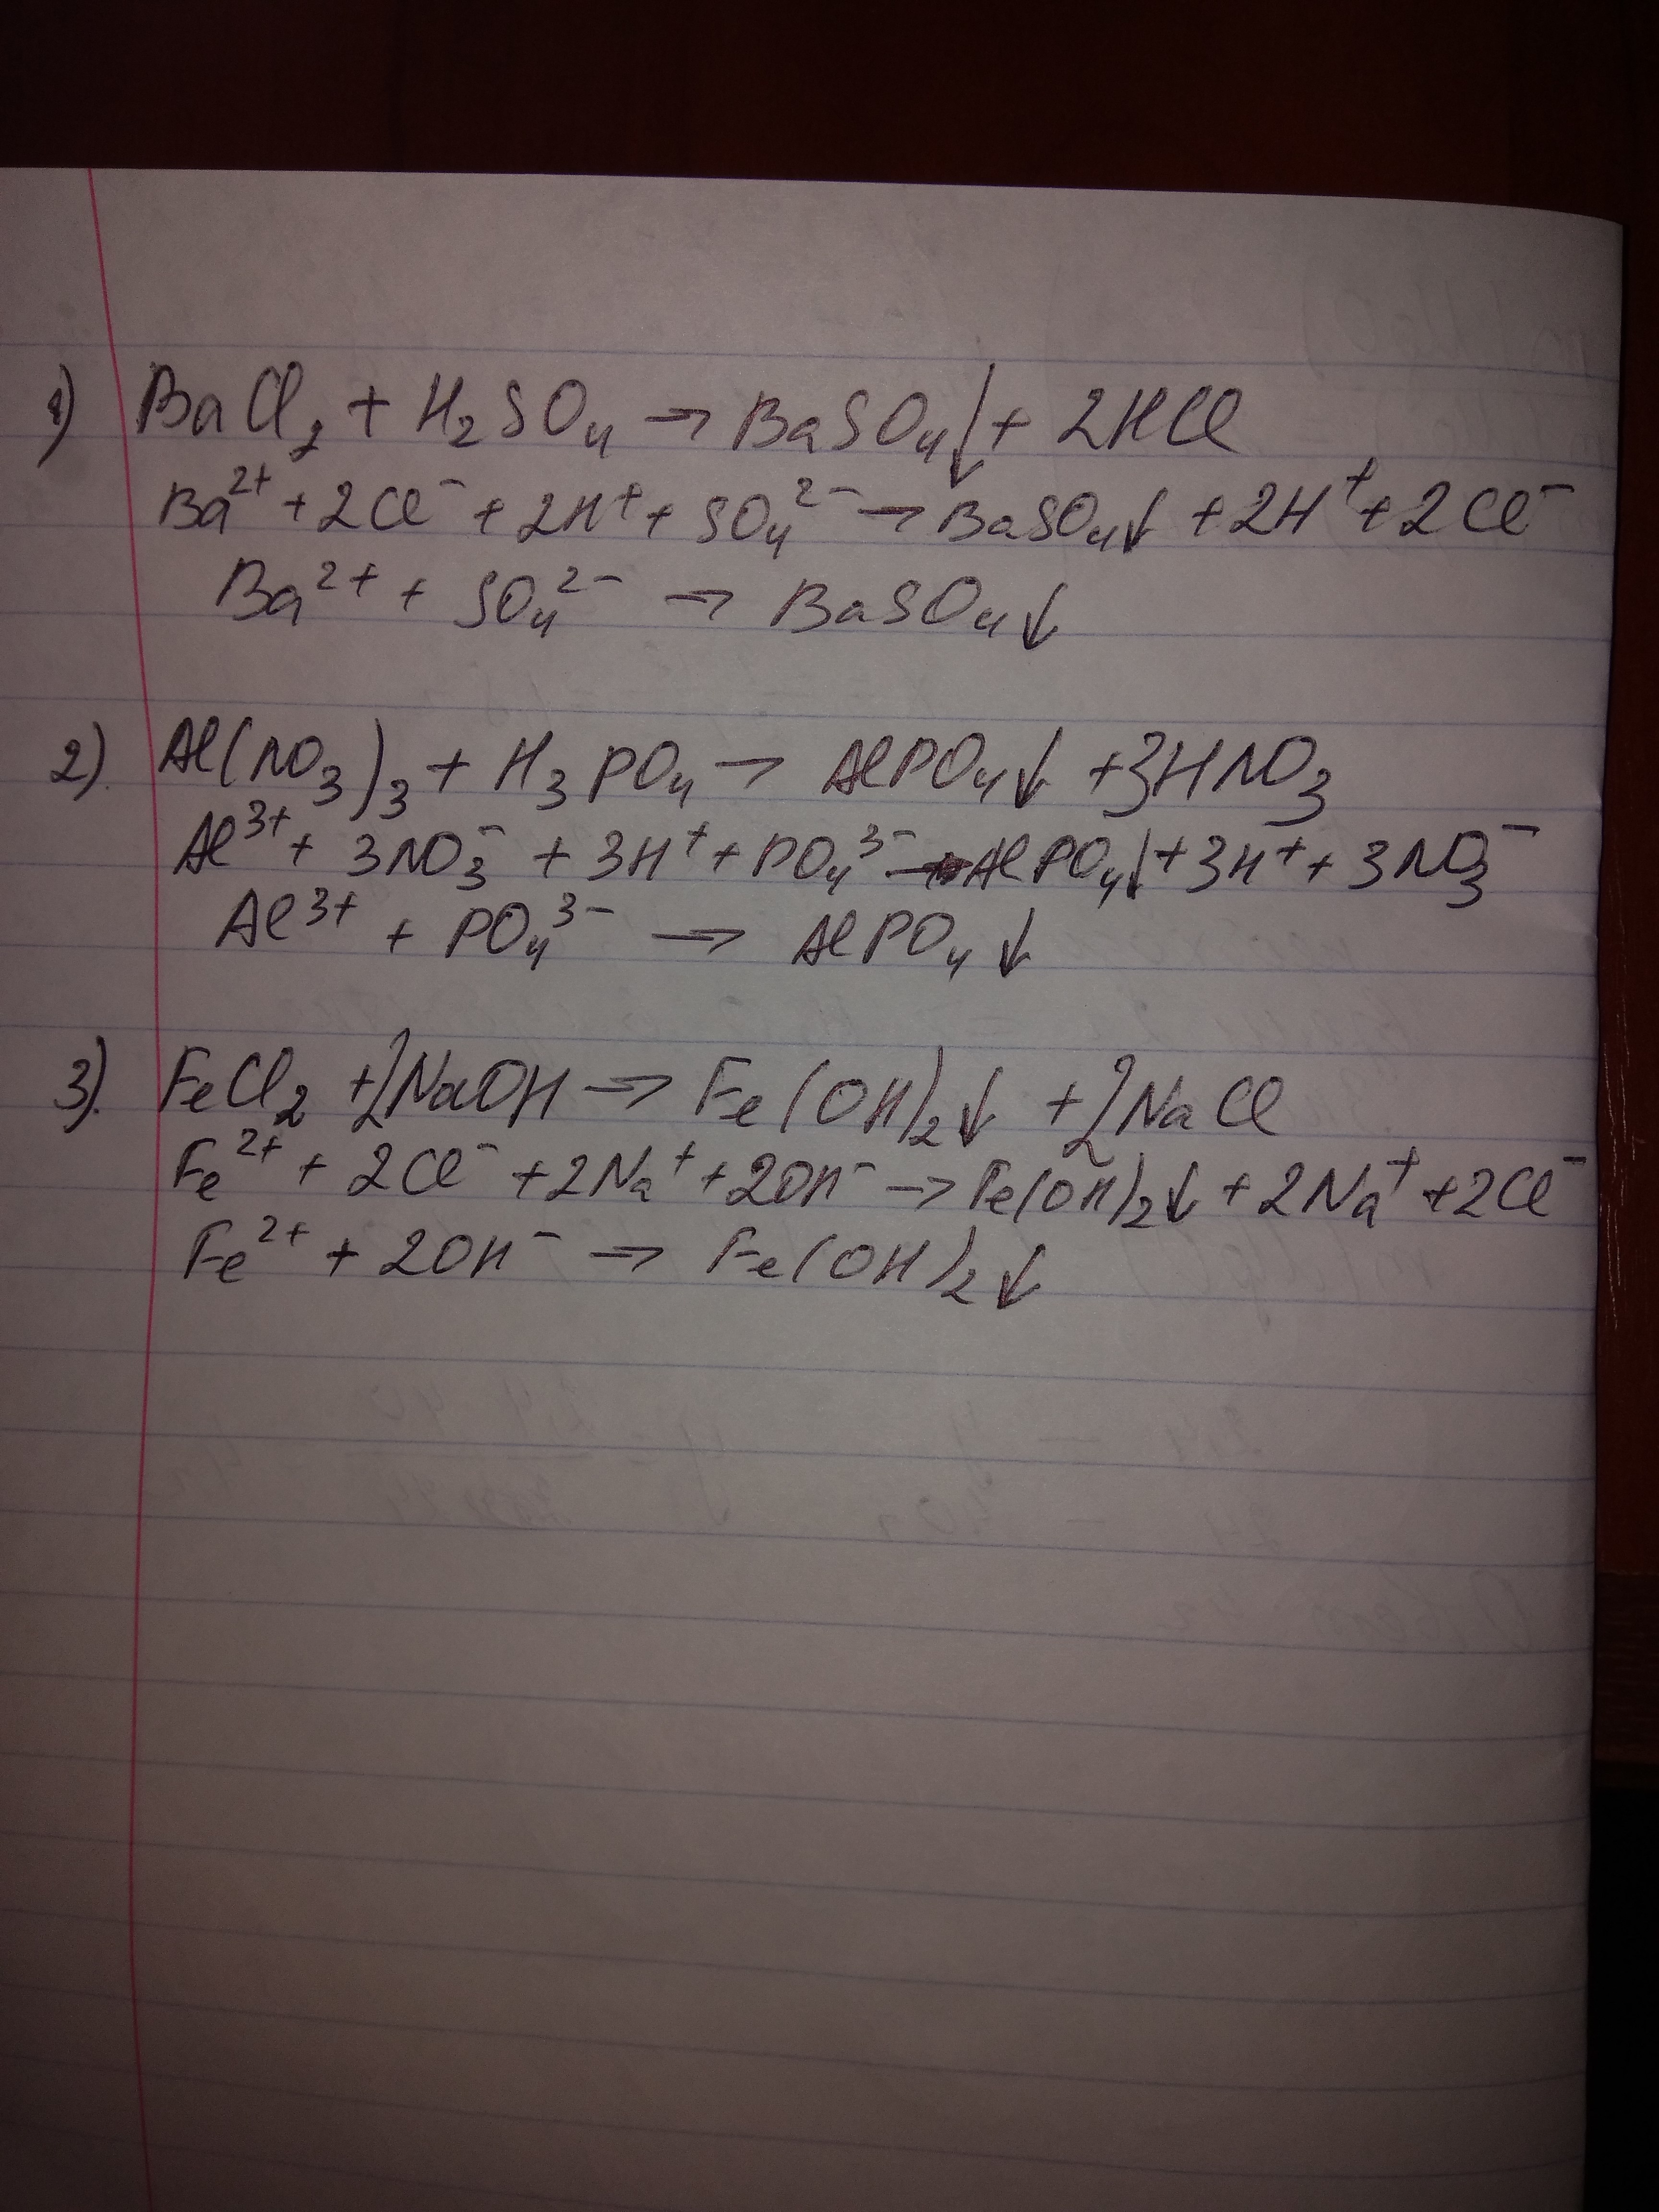 1) BaCl₂ + H₂SO₄ → BaSO₄↓ + 2HCl
Ba²⁺ + 2Cl⁻ + 2H⁺ + SO₄²⁻ → BaSO₄↓ + 2H⁺ + 2Cl⁻
Ba²⁺ + SO₄²⁻ → BaSO₄↓
2). Al(NO₃)₃ + H₃PO₄ → AlPO₄↓ + 3HNO₃
Al³⁺ + 3NO₃⁻ + 3H⁺ + PO₄³⁻ → AlPO₄↓ + 3H⁺ + 3NO₃⁻
Al³⁺ + PO₄³⁻ → AlPO₄↓
3). FeCl₂ + 2NaOH → Fe(OH)₂↓ + 2NaCl
Fe²⁺ + 2Cl⁻ + 2Na⁺ + 2OH⁻ → Fe(OH)₂↓ + 2Na⁺ + 2Cl⁻
Fe²⁺ + 2OH⁻ → Fe(OH)₂↓